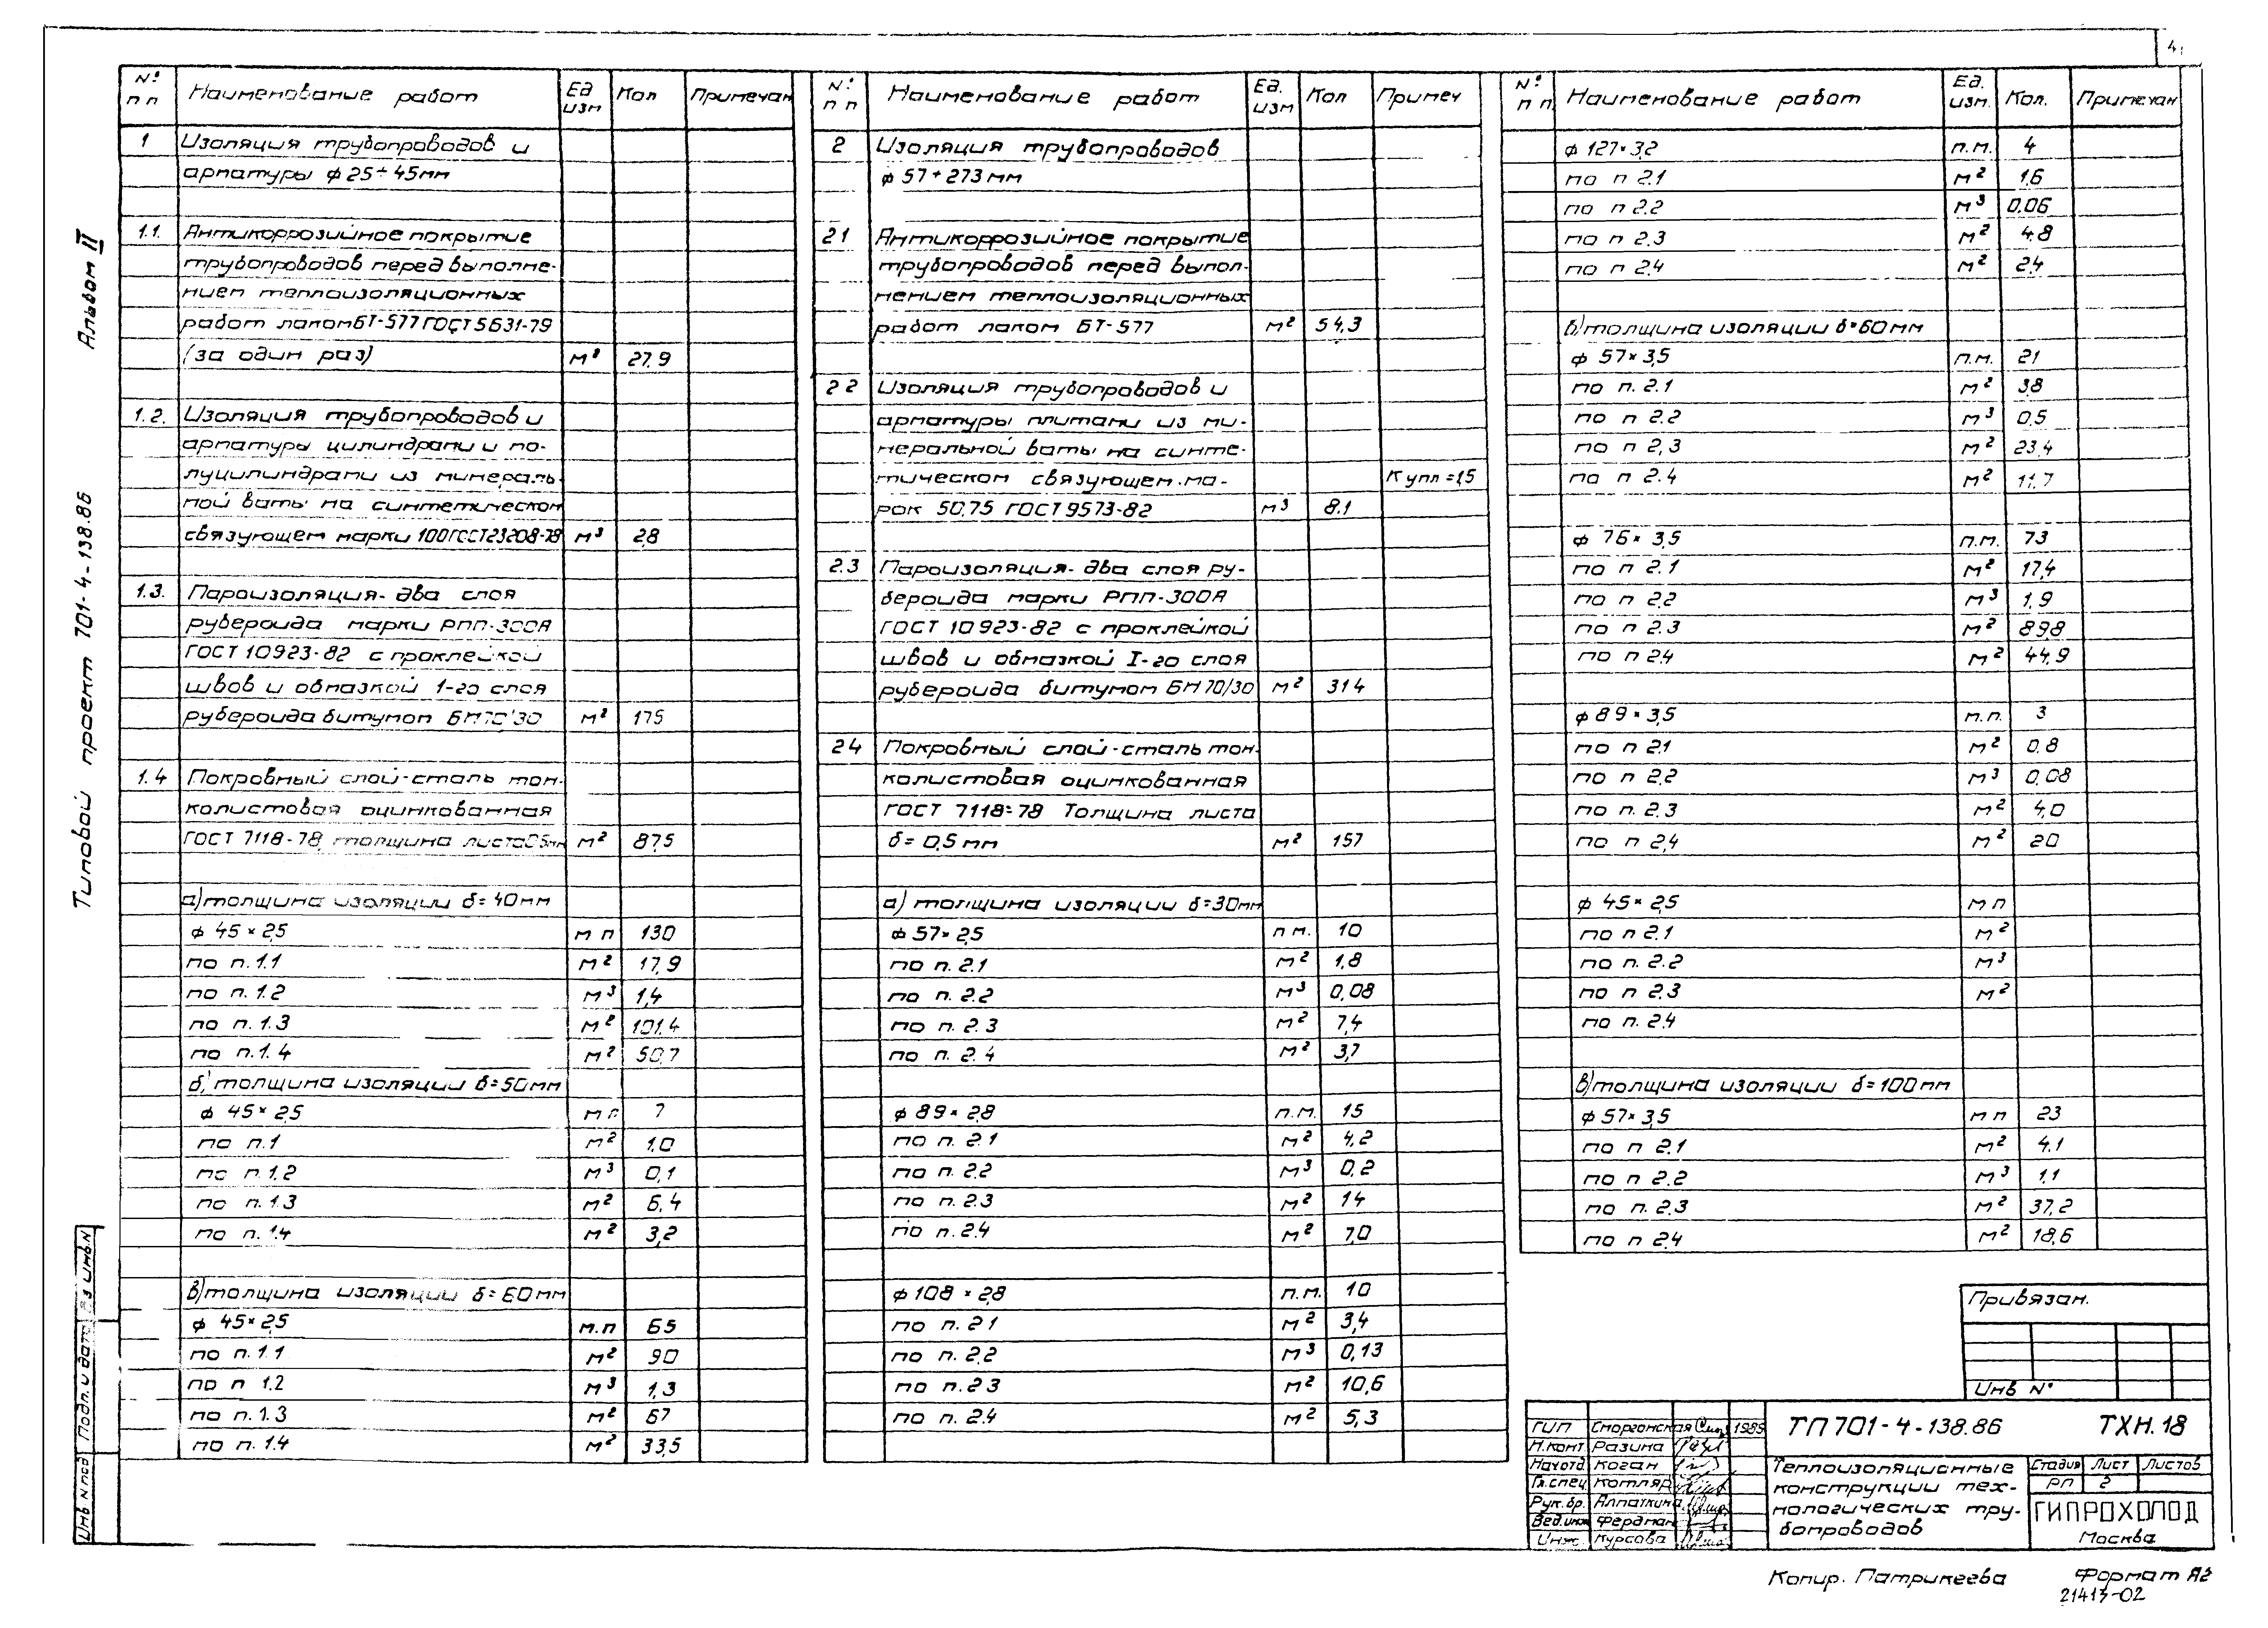 4
№ п п Наименование работ Ед изм Кол Примечан
1 Изоляция трубопроводов и
арматуры ф 25÷45мм
1.1. Антикоррозийное покрытие
трубопроводов перед выполне-
нием теплоизоляционных
работ лаком БТ-577 ГОСТ 5631-79
(за один раз) м² 27,9
1.2. Изоляция трубопроводов и
арматуры цилиндрами и по-
луцилиндрами из минераль-
ной ваты на синтетическом
связующем марки 100 ГОСТ 23208-78 м³ 2,8
1.3. Пароизоляция- два слоя
рубероида марки РПП-300А
ГОСТ 10923-82 с проклейкой
швов и обмазкой 1-го слоя
рубероида битумом БН70/30 м² 175
1.4 Покровный слой-сталь тон-
колистовая оцинкованная
ГОСТ 7118-78, толщина листа 0,5мм м² 87,5
а) толщина изоляции δ=40мм
ф 45×2,5 м п 130
по п.1.1 м² 17,9
по п.1.2 м³ 1,4
по п.1.3 м² 101,4
по п.1.4 м² 50,7
б) толщина изоляции δ=50мм
ф 45×2,5 м п 7
по п.1 м² 1,0
по п.1.2 м³ 0,1
по п.1.3 м² 6,4
по п.1.4 м² 3,2
в) толщина изоляции δ=60мм
ф 45×2,5 м.п 65
по п.1.1 м² 90
по п 1.2 м³ 1,3
по п.1.3 м² 67
по п.1.4 м² 33,5
№ п п Наименование работ Ед. изм Кол Примеч
2 Изоляция трубопроводов
ф 57÷273мм
2.1 Антикоррозийное покрытие
трубопроводов перед выпол-
нением теплоизоляционных
работ лаком БТ-577 м² 54,3
2.2 Изоляция трубопроводов и
арматуры плитами из ми-
неральной ваты на синте-
тическом связующем, ма- К упл =1,5
рок 50,75 ГОСТ 9573-82 м³ 8,1
2.3 Пароизоляция- два слоя ру-
бероида марки РПП-300А
ГОСТ 10923-82 с проклейкой
швов и обмазкой I-го слоя
рубероида битумом БН 70/30 м² 314
2.4 Покровный слой-сталь тон-
колистовая оцинкованная
ГОСТ 7118-78 Толщина листа
δ= 0,5 мм м² 157
а) толщина изоляции δ=30мм
ф 57×2,5 п м. 10
по п.2.1 м² 1,8
по п.2.2 м³ 0,08
по п.2.3 м² 7,4
по п.2.4 м² 3,7
ф 89×2,8 п.м. 15
по п. 2.1 м² 4,2
по п. 2.2 м³ 0,2
по п. 2.3 м² 14
по п. 2.4 м² 7,0
ф 108 × 2,8 п.м. 10
по п. 2.1 м² 3,4
по п. 2.2 м³ 0,13
по п. 2.3 м² 10,6
по п. 2.4 м² 5,3
№ п п Наименование работ Ед. изм. Кол. Примечан
ф 127×3,2 п.м. 4
по п 2.1 м² 1,6
по п 2.2 м³ 0,06
по п 2.3 м² 4,8
по п 2.4 м² 2,4
б) толщина изоляции δ=60мм
ф 57×3,5 п.м. 21
по п. 2.1 м² 3,8
по п 2.2 м³ 0,5
по п 2,3 м² 23,4
по п 2.4 м² 11,7
ф 76×3,5 п.м. 73
по п 2.1 м² 17,4
по п 2.2 м³ 1,9
по п 2.3 м² 89,8
по п 2.4 м² 44,9
ф 89×3,5 м.п. 3
по п 2.1 м² 0,8
по п 2.2 м³ 0,08
по п. 2.3 м² 4,0
по п 2,4 м² 20
ф 45×2,5 м п
по п 2.1 м²
по п. 2.2 м³
по п 2.3 м²
по п. 2.4
в) толщина изоляции δ=100мм
ф 57×3,5 м п 23
по п 2.1 м² 4,1
по п 2.2 м³ 1,1
по п. 2.3 м² 37,2
по п 2.4 м² 18,6
Привязан.
Инв №
ГИП Сморгонская 1985
Н.конт. Разина
Нач отд Коган
Гл.спец. Котляр
Рук.бр. Алпаткина
Вед.инж Фердман
Инж. Курсова
ТП 701-4-138.86 ТХН.18
Теплоизоляционные
конструкции тех-
нологических тру-
бопроводов
Стадия Лист Листов
РП 2
ГИПРОХОЛОД
Москва
Копир. Патрикеева Формат А2
21413-02
Типовой проект 701-4-138.86 Альбом II
Инв N под Подп. и дата Вз инв.N